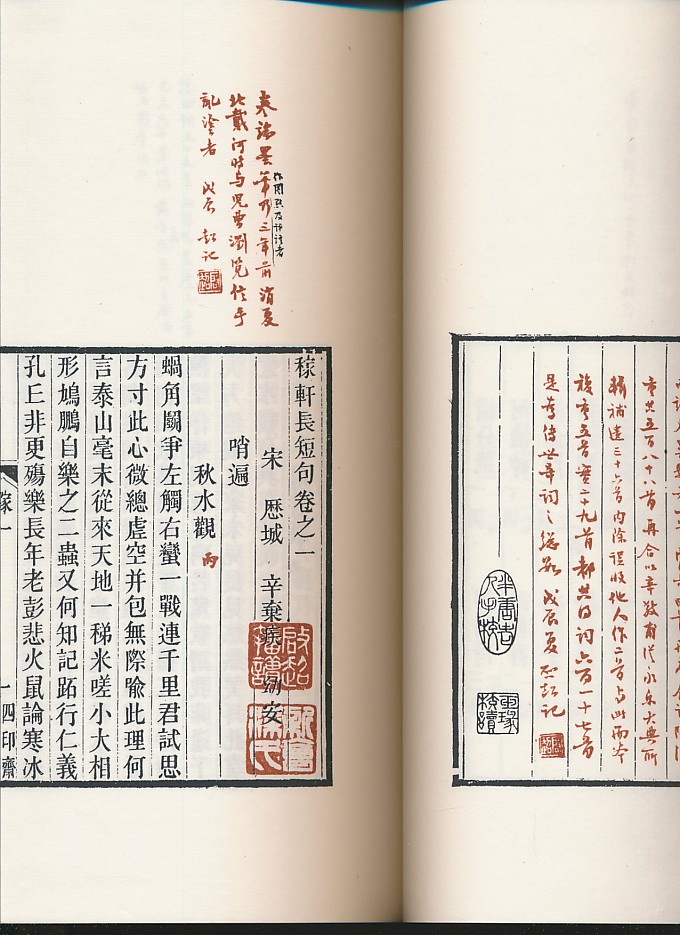 重共五百八十八首再合以辛敬甫從永樂大典所
輯補遺三十六首内除誤收他人作二首与此两本
複重五首實二十九首都共得詞六百一十七首
是為傳世辛詞之總數 戊辰夏 啟超記
卷端墨筆乃三年前消夏
作圈點及評註者
北戴河時与兒曹瀏覽信手
亂塗者 戊辰 超記
稼軒長短句卷之一
宋 厯城 辛棄疾 幼安
新會梁氏
哨遍
秋水觀 丙
蝸角鬭爭左觸右蠻一戰連千里君試思
方寸此心微總虛空并包無際喻此理何
言泰山毫末從來天地一稊米嗟小大相
形鳩鵬自樂之二蟲又何知記跖行仁義
孔丘非更殤樂長年老彭悲火鼠論寒冰
稼一
一
四印齋